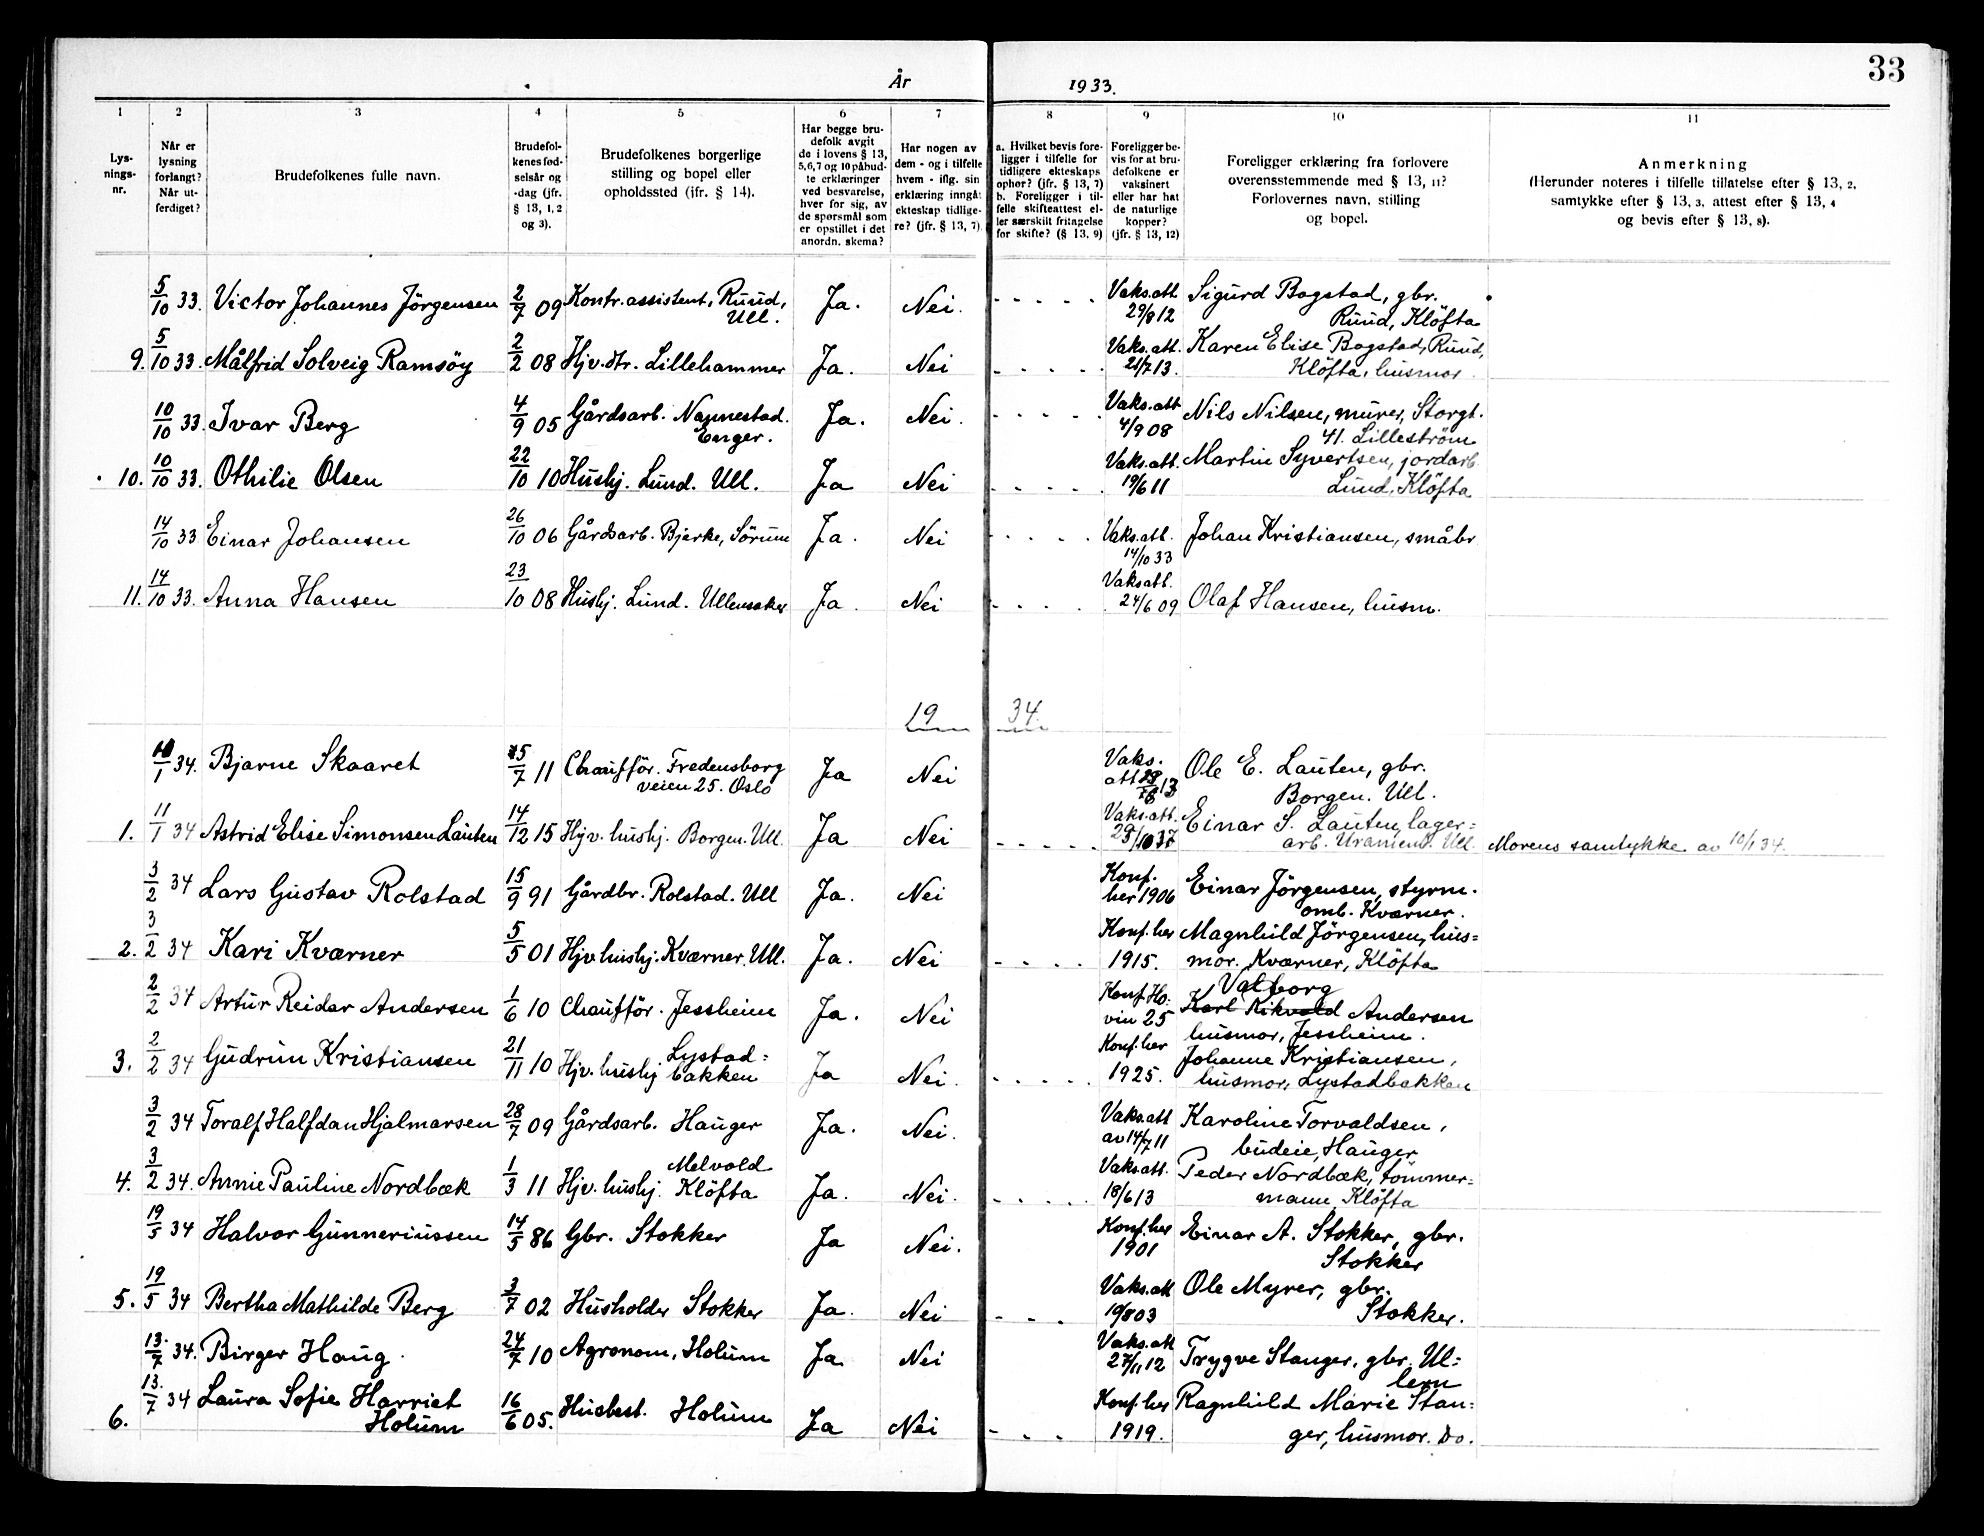 33
År 1933.
1 2 3 4 5 6 7 8 9 10 11
Lys-
nings-
nr.
Når er
lysning
forlangt?
Når ut-
ferdiget?
Brudefolkenes fulle navn.
Brudefol-
kenes fød-
selsår og
-dag (jfr.
§ 13, 1, 2
og 3).
Brudefolkenes borgerlige
stilling og bopel eller
opholdssted (ifr. § 14).
Har begge bru-
defolk avgit
de i lovens § 13,
5,6,7 og 10 påbud-
te erklæringer
ved besvarelse,
hver for sig, av
de spørsmål som
er opstillet i det
anordn. skema?
Har nogen av
dem - og i tilfelle
hvem - iflg. sin
erklæring inngåt
ekteskap tidlige-
re? (jfr. § 13, 7).
a. Hvilket bevis fore-
ligger i tilfelle for
tidligere ekteskaps
ophør? (jfr. § 13, 7)
b. Foreligger i til-
felle skifteattest el-
ler særskilt fritagelse
for skifte? (§ 13, 9)
Foreligger be-
vis for at bru-
defolkene er
vaksinert
eller har hat
de naturlige
kopper?
(jfr. § 13, 12)
Foreligger erklæring fra forlovere
overensstemmende med § 13, 11?
Forlovernes navn, stilling
og bopel.
Anmerkning
(Herunder noteres i tilfelle tillatelse efter § 13, 2,
samtykke efter § 13, 3, attest efter § 13, 4
og bevis efter § 13, 8).
5/10 33. Victor Johannes Jörgensen 2/7 09 Kontr.assistent, Ruud, Ja. Nei. - - - - - Vaks.att. Sigurd Bogstad, gbr.
Ull. 29/8 12 Ruud, Klöfta
9. 5/10 33. Målfrid Solveig Ramsöy 2/2 08 Hjv. dtr. Lillehammer Ja. Nei - - - - - Vaks.att. Karen Elise Bogstad, Ruud,
21/7 13. Klöfta, husmor.
10/10 33. Ivar Berg 4/9 05 Gårdsarb. Nannestad. Ja. Nei. - - - - - Vaks.att Nils Nilsen, murer, Storgt.
Enger. 4/9 08 41. Lilleström
10. 10/10 33. Othilie Olsen 22/10 10 Hushj. Lund. Ull. Ja Nei - - - - - Vaks.att. Martin Syvertsen, jordarb
19/6 11 Lund, Klöfta
14/10 33 Einar Johansen 26/10 06 Gårdsarb. Bjerke, Sörum Ja. Nei - - - - - Vaks.att. Johan Kristiansen, småbr
14/10 33
11. 14/10 33. Anna Hansen 23/10 08 Hushj. Lund. Ullensaker Ja. Nei - - - - - Vaks att.
24/6 09 Olaf Hansen, husm.
19 34.
10/1 34. Bjarne Skaaret 15/7 11 Chaufför. Fredensborg Ja Nei Vaks. Ole E. Lauten, gbr.
veien 25. Oslo att 13 Borgen. Ull.
1. 11/1 34 Astrid Elise Simonsen Lauten 14/12 15 Hjv. hushj. Borgen. Ull. Ja Nei - - - - - Vaks.att. Einar S. Lauten, lager=
29/10 37 arb. Ull. Morens samtykke av 10/1 34.
3/2 34 Lars Gustav Rolstad 15/9 91 Gårdbr. Rolstad. Ull Ja. Nei Konf. Einar Jörgensen, styrm.
her 1906 omb. Kværner.
2. 3/2 34 Kari Kværner 5/5 01 Hjv hushj. Kværner. Ull. Ja. Nei - - - - Konf. her Magnhild Jörgensen, hus=
1915. mor. Kværner, Klöfta
2/2 34 Artur Reidar Andersen 1/6 10 Chaufför. Jessheim Ja. Nei Konf. Ho= Valborg
vin 25 Karl Rikvold Andersen
husmor, Jessheim.
3. 2/2 34 Gudrun Kristiansen 21/11 10 Hjv. hushj Lystad= Ja Nei. - - - - - Konf. her Johanne Kristiansen,
bakken 1925. husmor, Lystadbakken
3/2 34 Toralf Halfdan Hjalmarsen 28/7 09 Gårdsarb. Hauger Ja. Nei. Vaks.att Karoline Torvaldsen,
av 14/7 11 budeie, Hauger
4. 3/2 34. Annie Pauline Nordbæk 1/3 11 Hjv. hushj. Melvold Ja. Nei. - - - - - Vaks att. Peder Nordbæk, tömmer=
Klöfta 18/6 13 mann, Klöfta
19/5 34 Halvor Gunneriussen 14/5 86 Gbr. Stokker Ja Nei. Konf. her Einar A. Stokker, gbr.
1901 Stokker
5. 19/5 34 Bertha Mathilde Berg 3/7 02 Husholder Stokker Ja. Nei - - - - Vaks.att Ole Myrer, gbr.
19/8 03 Stokker.
13/7 34. Birger Haug. 24/7 10 Agronom, Holum Ja. Nei Vaks.att Trygve Stanger, gbr. Ul=
27/11 12 lern
6. 13/7 34 Laura Sofie Harriet 16/6 05. Husbest. Holum Ja Nei - - - Konf. her Ragnhild Marie Stan=
Holum 1919. ger, husmor. Do.